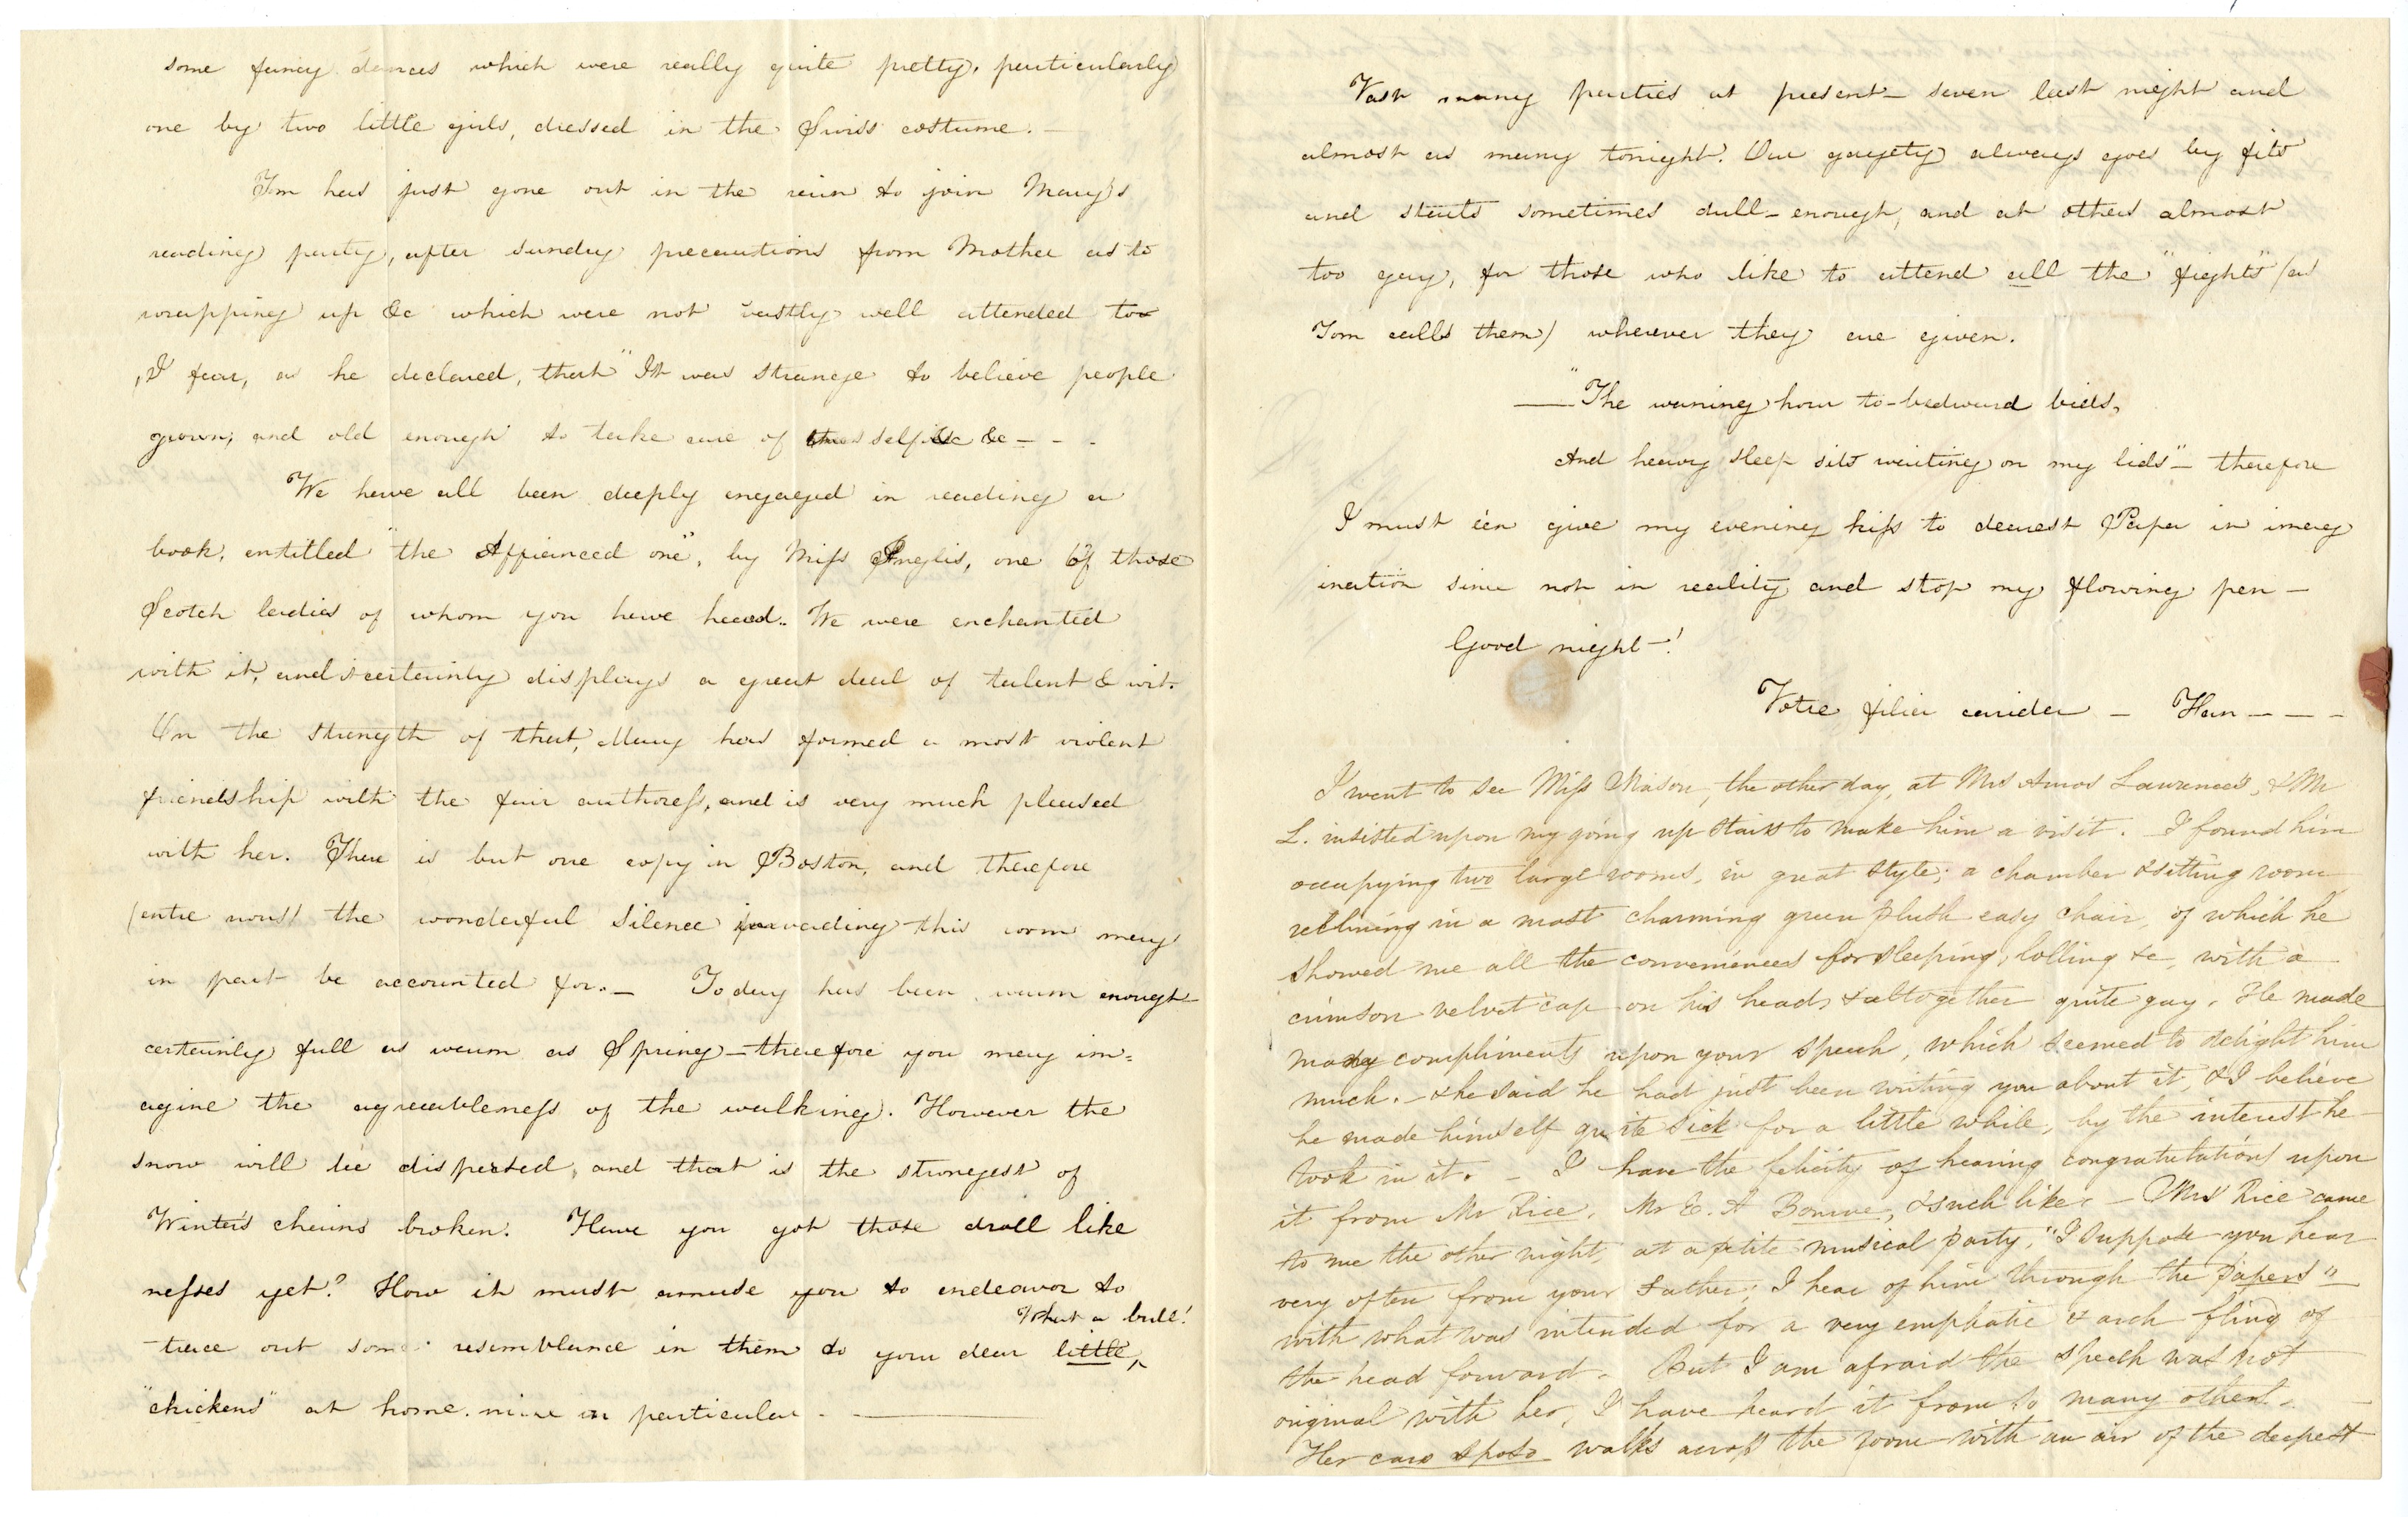 some fancy dances which were really quite pretty, particularly
one by two little girls, dressed in the Swiss costume. —
Tom has just gone out in the rain to join Mary's
reading party, after sundry precautions from Mother as to
wrapping up &c which were not vastly well attended to
, I fear, as he declared, that "It was strange to believe people
grown, and old enough to take care of self &c &c — - -
We have all been deeply engaged in reading a
book, entitled "the Affianced one", by Miss Inglis, one of those
Scotch ladies of whom you have heard.. We were enchanted
with it, and it certainly displays a great deal of talent & wit.
On the strength of that, Mary has formed a most violent
friendship with the fair authoress, and is very much pleased
with her. There is but one copy in Boston, and therefore
(entre nous) the wonderful silence pervading this room may
in part be accounted for. — Today has been warm enough
certainly full as warm as Spring — therefore you may im=
agine the agreeableness of the walking. However the
snow will be dispersed, and that is the strongest of
Winter's chains broken. Have you got those droll like
nesses yet? How it must amuse you to endeavor to
What a bull!
trace out some resemblance in them to your dear little ‸
"chickens" at home. mine in particular. ———
Vast many parties at present — seven last night and
almost as many tonight. Our gayety always goes by fits
and starts sometimes dull — enough, and at others almost
too gay, for those who like to attend all the "fights" (as
Tom calls them) wherever they are given.
— "The waning hour to-bedward bids,
And heavy sleep sits waiting on my lids" — therefore
I must e'en give my evening kiss to dearest Papa in imag
ination since not in reality and stop my flowing pen —
Good night —!
Votre filia carida — Han — — —
I went to see Miss Mason, the other day, at Mrs Amos Lawrence's, & Mr
L. insisted upon my going up stairs to make him a visit. I found him
occupying two large rooms, in great style; a chamber & sitting room
reclining in a most charming green plush easy chair, of which he
showed me all the conveniences for sleeping, lolling &c, with a
crimson velvet cap on his head, & altogether quite gay. He made
many compliments upon your speech, which seemed to delight him
much. — & he said he had just been writing you about it, & I believe
he made himself quite sick for a little while, by the interest he
took in it. — I have the felicity of hearing congratulations upon
it from Mr Rice, Mr E. A. & such like. — Mrs Rice came
to me the other night, at a petite musical party, "I suppose you hear
very often from your Father; I hear of him through the papers"
with what was intended for a very emphatic & arch fling of
the head forward. But I am afraid the speech was not
original with her, I have heard it from so many others.
Her caro sposo walks across the room with an air of the deepest